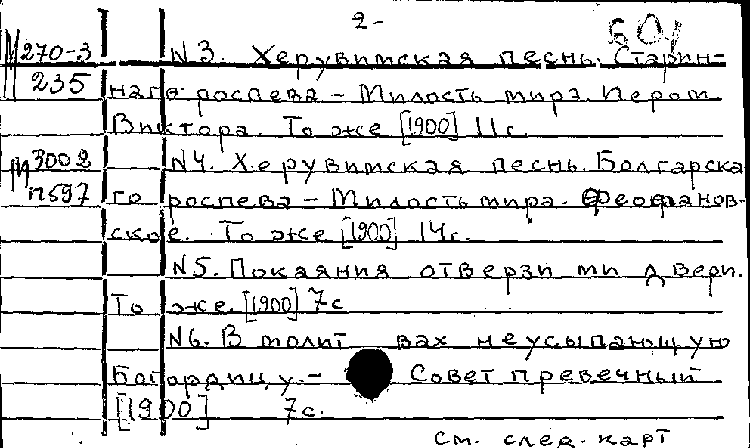 2-
601
М 270-3 N3. Херувимская песнь. Старин-
235 наго роспева - Милость мира. Иером
Виктора. То же [1900] 11с.
М 3002 N4. Херувимская песнь. Болгарска
п597 го роспева - Милость мира. Феофанов-
ское. То же [1900] 14с.
N5. Покаяния отверзи ми двери.
То же. [1900] 7с
N6. В молит вах неусыпающую
Богордицу. - Совет превечный
[1900] 7с.
см. след. карт